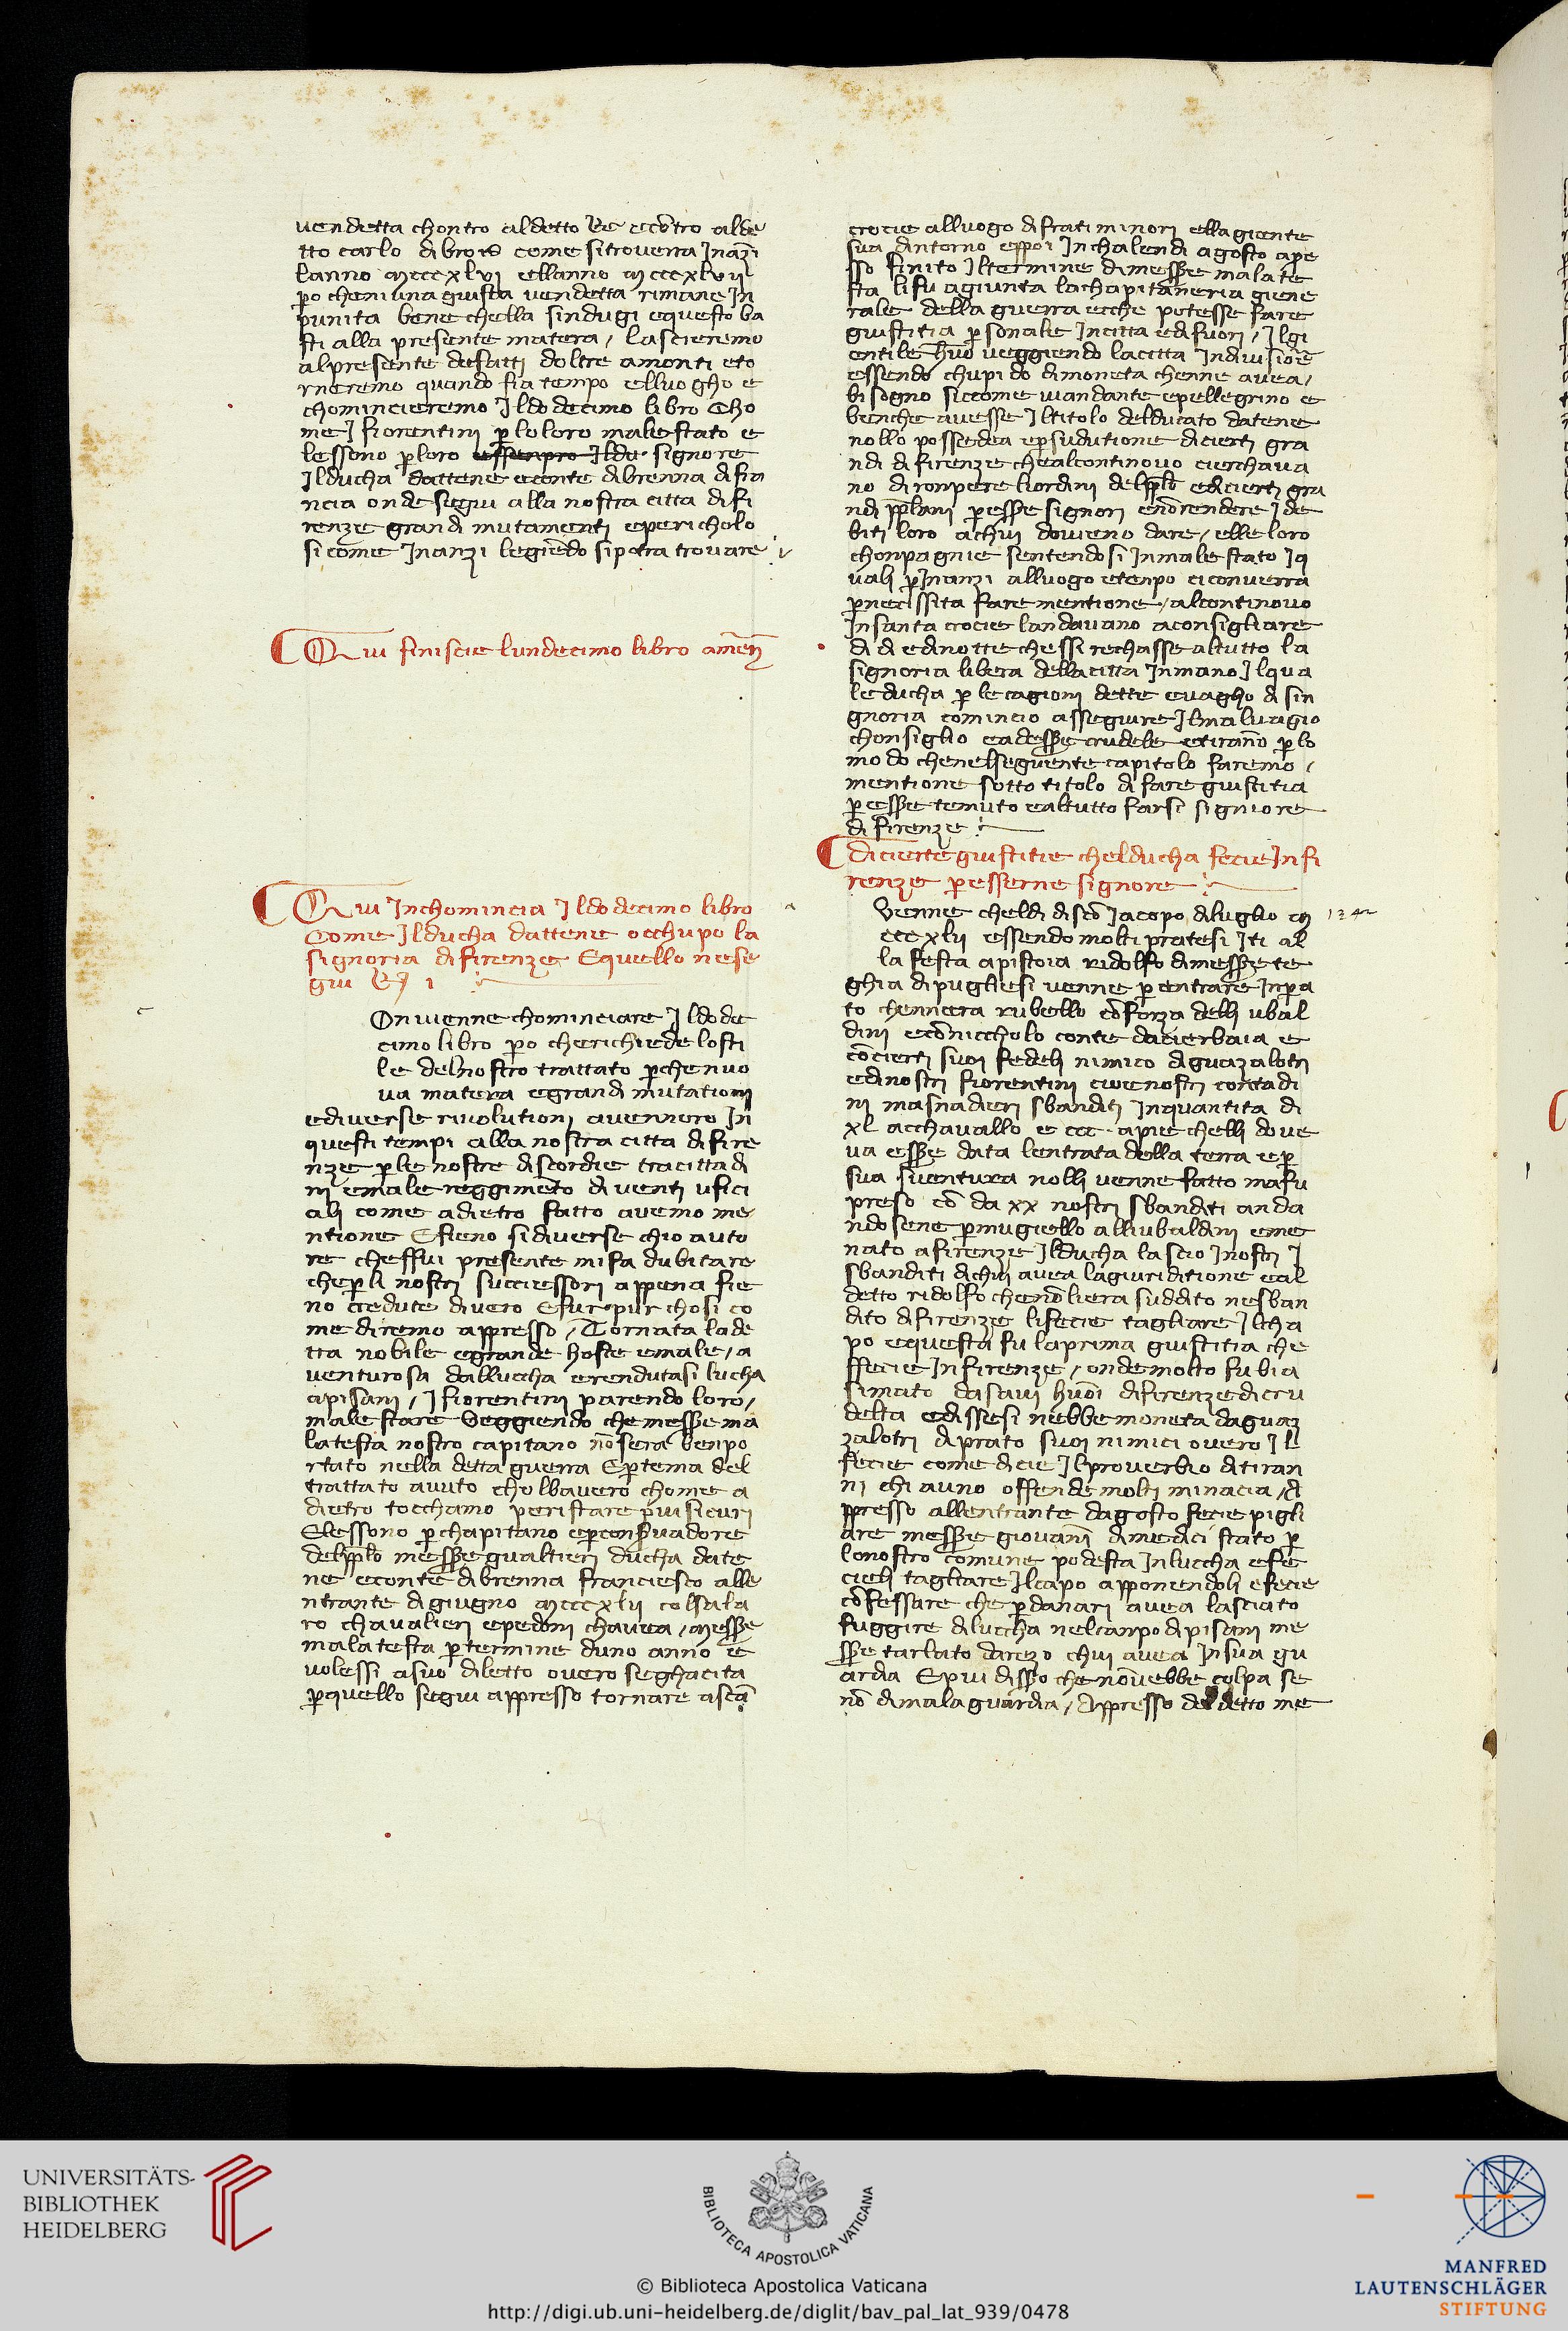 vendetta chontro aldetto Re econtro alde
tto carlo dibrois come sitroverra Jnazi
lanno mcccxlvi ellanno mcccxlvii
po cheniuna giusta vendetta rimane Jn
punita bene chella sindugi equesto ba
sti alla presente matera / lascieremo
alpresente defatti doltre amonti eto
rneremo quando fia tempo elluogho e
chomincieremo Jldodecimo libro Cho
me J fiorentini p loloro malestato e
lessono ploro signore
Jlducha dattene econte dibrenna difra
ncia onde segui alla nostra citta difi
renze grandi mutamenti epericholo
si come Jnanzi legiēdo sipotra trovare
Qui finiscie lundecimo libro amen
Qui Jnchomincia Jldodecimo libro
Come Jlducha dattene occhupo la
signoria difirenze Equello nese
gui
Onvienne chominciare Jldode
cimo libro po cherichiede losti
le delnostro trattato pchenuo
va matera egrandi mutationi
ediverse rivolutioni avennero Jn
questi tempi alla nostra citta difire
nze ple nostre discordie tracittadi
ni emale reggimēto diventi ufici
ali come adietro fatto avemo me
ntione Efieno sidiverse chio auto
re cheffui presente mifa dubitare
chepli nostri successori appena fie
no credute divero Efur pur chosi co
me diremo appresso / Tornata lade
tta nobile egrande hoste emale / a
venturosa dalluccha erendutasi lucha
apisani / J fiorentini parendo loro /
male stare Veggiendo che messe ma
latesta nostro capitano nō sera benpo
rtato nella detta guerra Eptema del
trattato avuto cholbavero chome a
dietro tocchamo peristare piui sicuri
Elessono p chapitano epconsvadore
delpplō messe gualtieri ducha date
ne econte dibrenna franciesco alle
ntrante digiugno mcccxlii colsala
ro chavalieri epedoni chavea / messe
malatesta ptermine duno anno e
volessi asuo diletto overo seghacita
pquello segui appresso tornare asCā
crocie alluogo difrati minori ella giente
sua dintorno eppoi Jnchalendi agosto ape
sso finito Jltermine dimesse malate
sta lifu agiunta lachapitaneria giene
rale della guerra ecche potesse fare
giustitia psonale Jncitta edifuori / Jlgi
entile hūo veggiendo lacitta Jndivisione
essendo chupido dimoneta chenne avea /
bisogno siccome viandante epellegrino e
benche avesse Jltitolo delducato datene
nollo possedea epsudutione dicierti gra
ndi difirenze chealcontinovo cierchava
no dironpere liordini delpplō edicierti gra
ndi pplani pesse signori enōrendere J de
biti loro achui doveno dare / elle loro
chonpagnie sentendosi Jnmale stato Jq
uali pJnanzi alluogo etenpo ciconverra
pnecissita fare mentione / alcontinovo
Jnsanta crocie landavano aconsigliare
di di edinotte chessi rechasse altutto la
signoria libera dellacitta Jnmano Jlqua
le ducha p lecagioni dette evagho di sin
gnoria comincio asseguire Jlmalvagio
chonsiglio eadesse crudele etirano plo
modo chenelseguente capitolo faremo /
mentione sotto titolo di fare giustitia
pesse temuto ealtutto farsi signiore
di firenze
dicierte giustitie chelducha fecie Jnfi
renze pesserne signore
Venne cheldi discō Jacopo diluglio m
cccxlii essendo molti pratesi Jti al
la festa apistoia ridolfo dimesse te
ghia dipugliesi venne pentrare Jnpra
to chennera rubello cōforza delli ubal
dini econiccholo conte dacierbaia e
cōcierti suoi fedeli nimico diguazalotri
edinostri fiorentini cioe nostri contadi
ni masnadieri sbanditi Jnquantita di
xl acchavallo e ccc apie chelli dove
va esse data lentrata della terra ep
sua sventura nolli venne fatto mafu
preso cō da xx nostri sbanditi anda
ndosene pmugiello alliubaldini eme
nato afirenze Jlducha lascio Jnostri J
sbanditi dichui avea lagiuriditione eal
detto ridolfo chenōliera suddito nesban
dito difirenze lifecie tagliare Jlcha
po equesta fu laprima giustitia che
ffecie Jnfirenze / onde molto fu bia
simato dasavi huōi difirenze dicru
delta edissesi nebbe moneta daguaz
zalotri diprato suoi nimici overo Jl
fecie come dicie Jlproverbio ditiran
ni chi auno offende molti minacia / di
ppresso allentrante dagosto fecie pigli
are messe giovani dimedici stato p
lonostro comune podesta Jnluccha efe
cieli tagliare Jlcapo apponendoli efecie
cōfessare che pdanari avea lasciato
fuggire diluccha nelcanpo dipisani me
sse tarlato darezo chui avea Jnsua gu
ardia Epiui disso chenōvebbe colpa se
nō dimala guardia / Appresso deldetto me
1342
UNIVERSITÄTS-
BIBLIOTHEK
HEIDELBERG
BIBLIOTECA APOSTOLICA VATICANA
© Biblioteca Apostolica Vaticana
http://digi.ub.uni-heidelberg.de/diglit/bav_pal_lat_939/0478
MANFRED
LAUTENSCHLÄGER
STIFTUNG